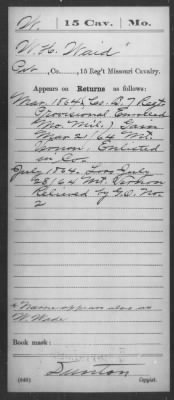 W. | 15 Cav. | Mo.
W. H. Waid*
Co., 15 Reg't Missouri Cavalry.
Appears on Returns as follows:
Mar. 1864, Co. D, 7 Regt.
Provisional Enrolled
Mo. Mil.) Gain
Mar. 21/64 Mt.
Vernon. Enlisted
in Co.
July 1864. Loss July
28/64 Mt. Vernon
Relieved by G.O. No.
2
*Name appears also as
W. Wade
Book mark:
(546)
Dunton
Copyist.